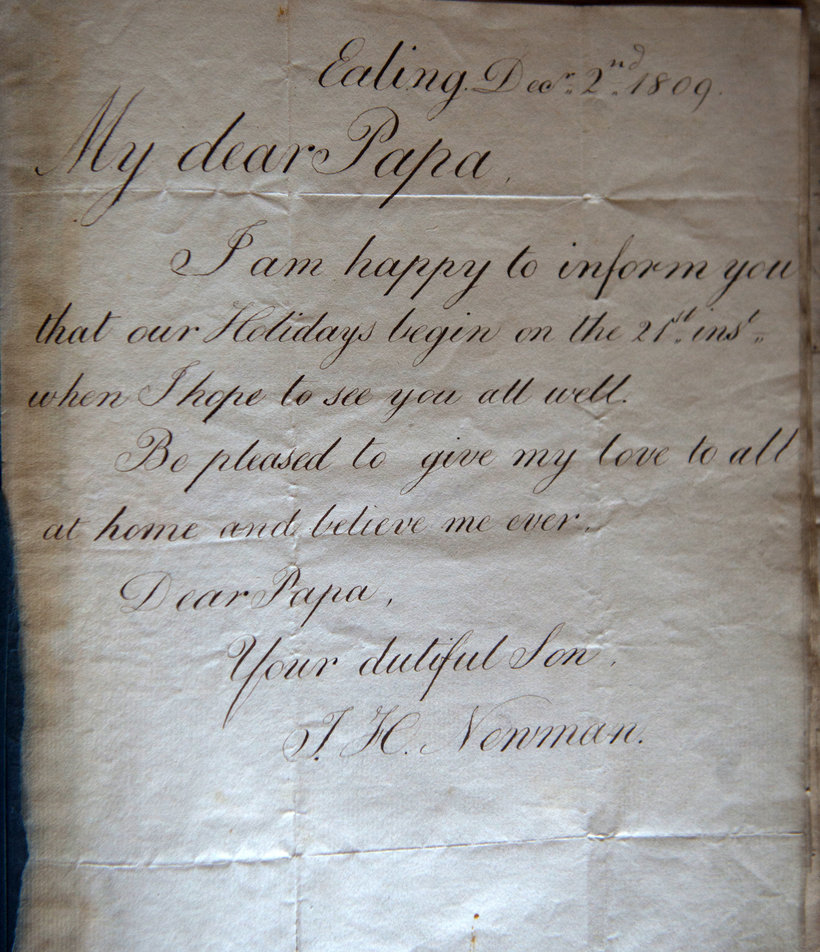 Ealing. Decr. 2nd. 1809.
My dear Papa,
I am happy to inform you
that our Holidays begin on the 21st. inst.,
when I hope to see you all well.
Be pleased to give my love to all
at home and believe me ever,
Dear Papa,
Your dutiful Son,
J. H. Newman.